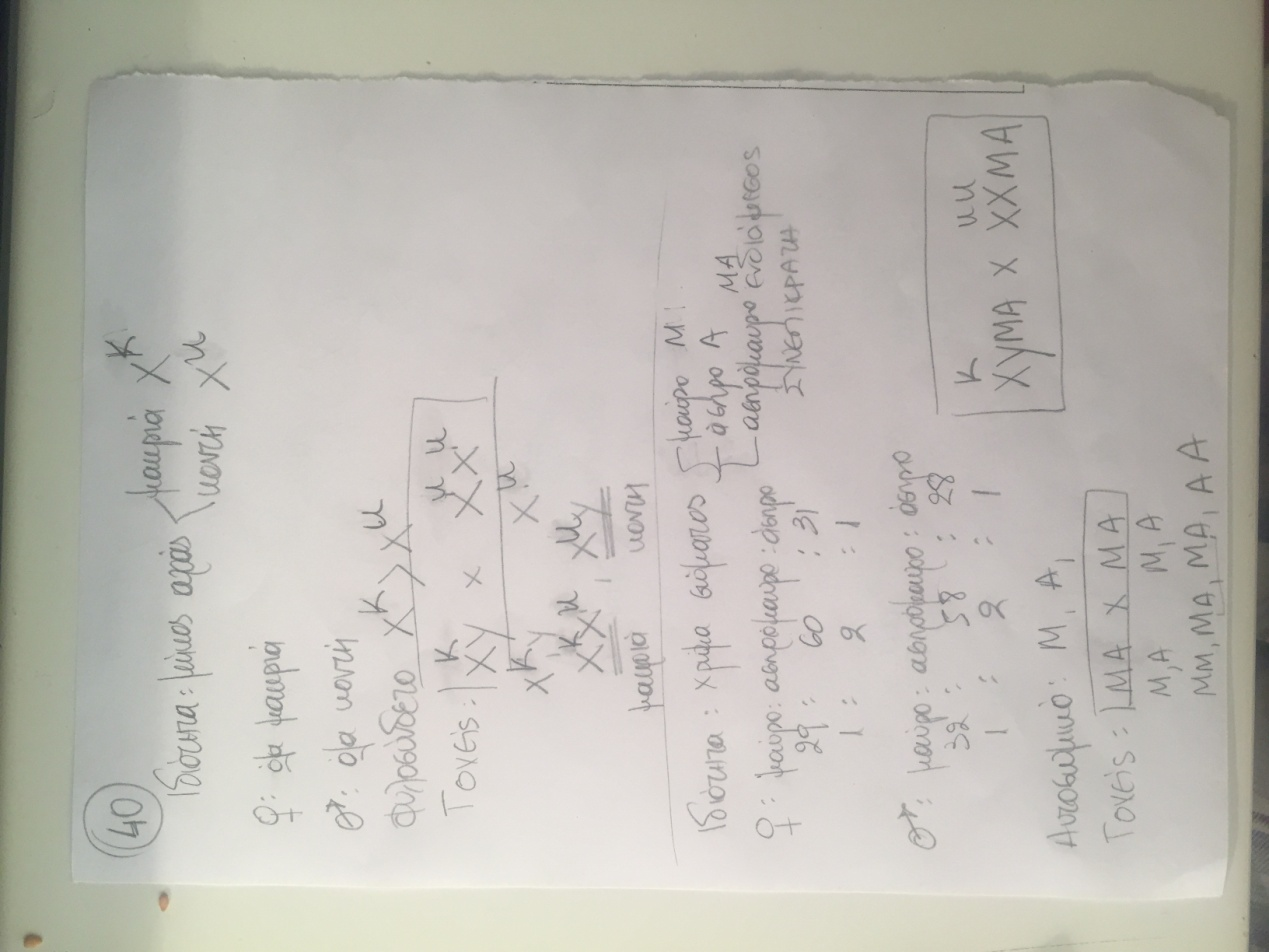 40
Ιδιότητα: μήκος ουράς { μακριά X^K
κοντή X^κ
♀: όλα μακριά
♂: όλα κοντή
Φυλοσύνδετο X^K > X^κ
Γονείς: X^K y x X^κ X^κ
X^K, y X^κ
X^K X^κ, X^κ y
μακριά κοντή
Ιδιότητα: χρώμα σώματος { μαύρο M
άσπρο A
ασπρόμαυρο MA ενδιάμεσος
ΣΥΝΕΠΙΚΡΑΤΗ
♀: μαύρο: ασπρόμαυρο: άσπρο
29 : 60 : 31
1 : 2 : 1
♂: μαύρο: ασπρόμαυρο: άσπρο
32 : 58 : 28
1 : 2 : 1
Αυτοσωμικό: M, A,
Γονείς: MA x MA
M, A M, A
MM, MA, MA, AA
X^K Y MA x X^κ X^κ MA